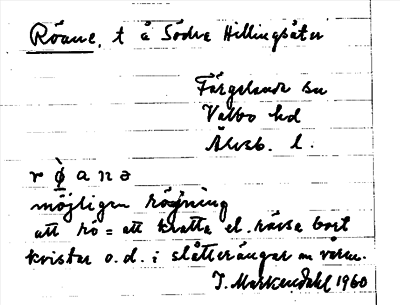 Röane, t å Södra Hillingsäter
Färgelanda sn
Valbo hd
Älvsb. l.
r ö̀ a n ə
möjligen röjning
att rö = att kratta el. räfsa bort
kvistar o.d. i slåtterängar om våren.
J. Markendahl 1960